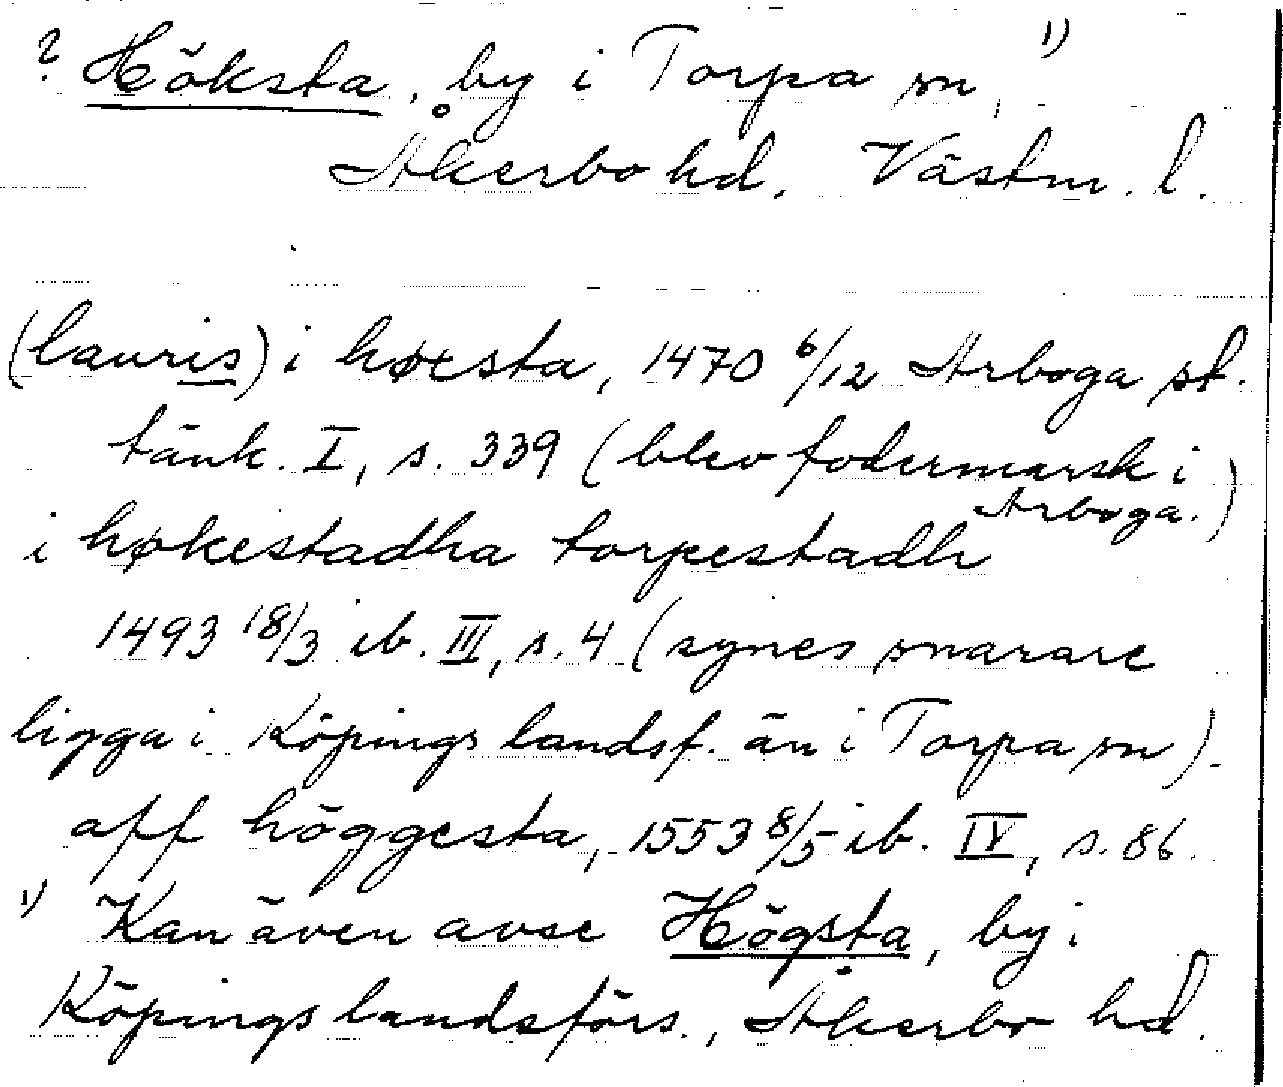 ? Höksta, by i Torpa sn, 1)
Åkerbo hd. Västm. l.
(lauris) i høxsta, 1470 6/12 Arboga st.
tänk. I, s. 339 (blev fodermarsk i
Arboga.)
i høkestadha torpestadh
1493 18/3 ib. III, s. 4 (synes snarare
ligga i Köpings landsf. än i Torpa sn).
aff höggesta, 1553 8/5 ib. IV, s. 86.
1) Kan även avse Högsta, by i
Köpings landsförs., Åkerbo hd.